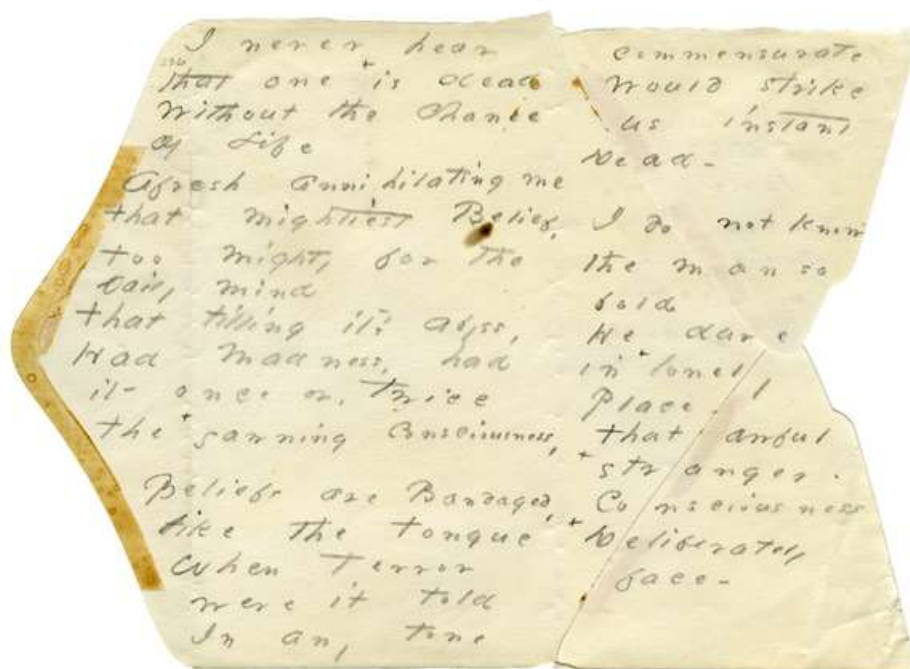 I never hear
that one is dead
Without the Chance
of Life
Afresh annihilating me
that mightiest Belief,
too mighty for the
Daily mind
that tilling it's abyss,
Had Madness, had
it once or, Twice
the yawning Consciousness,
Beliefs are Bandaged,
like the Tongue
When Terror
were it told
In any Tone
Commensurate
Would strike
us instant
Dead -
I do not know
the man so
bold
He dare
in lonely
Place
that awful
stranger.
Consciousness
Deliberately
face -